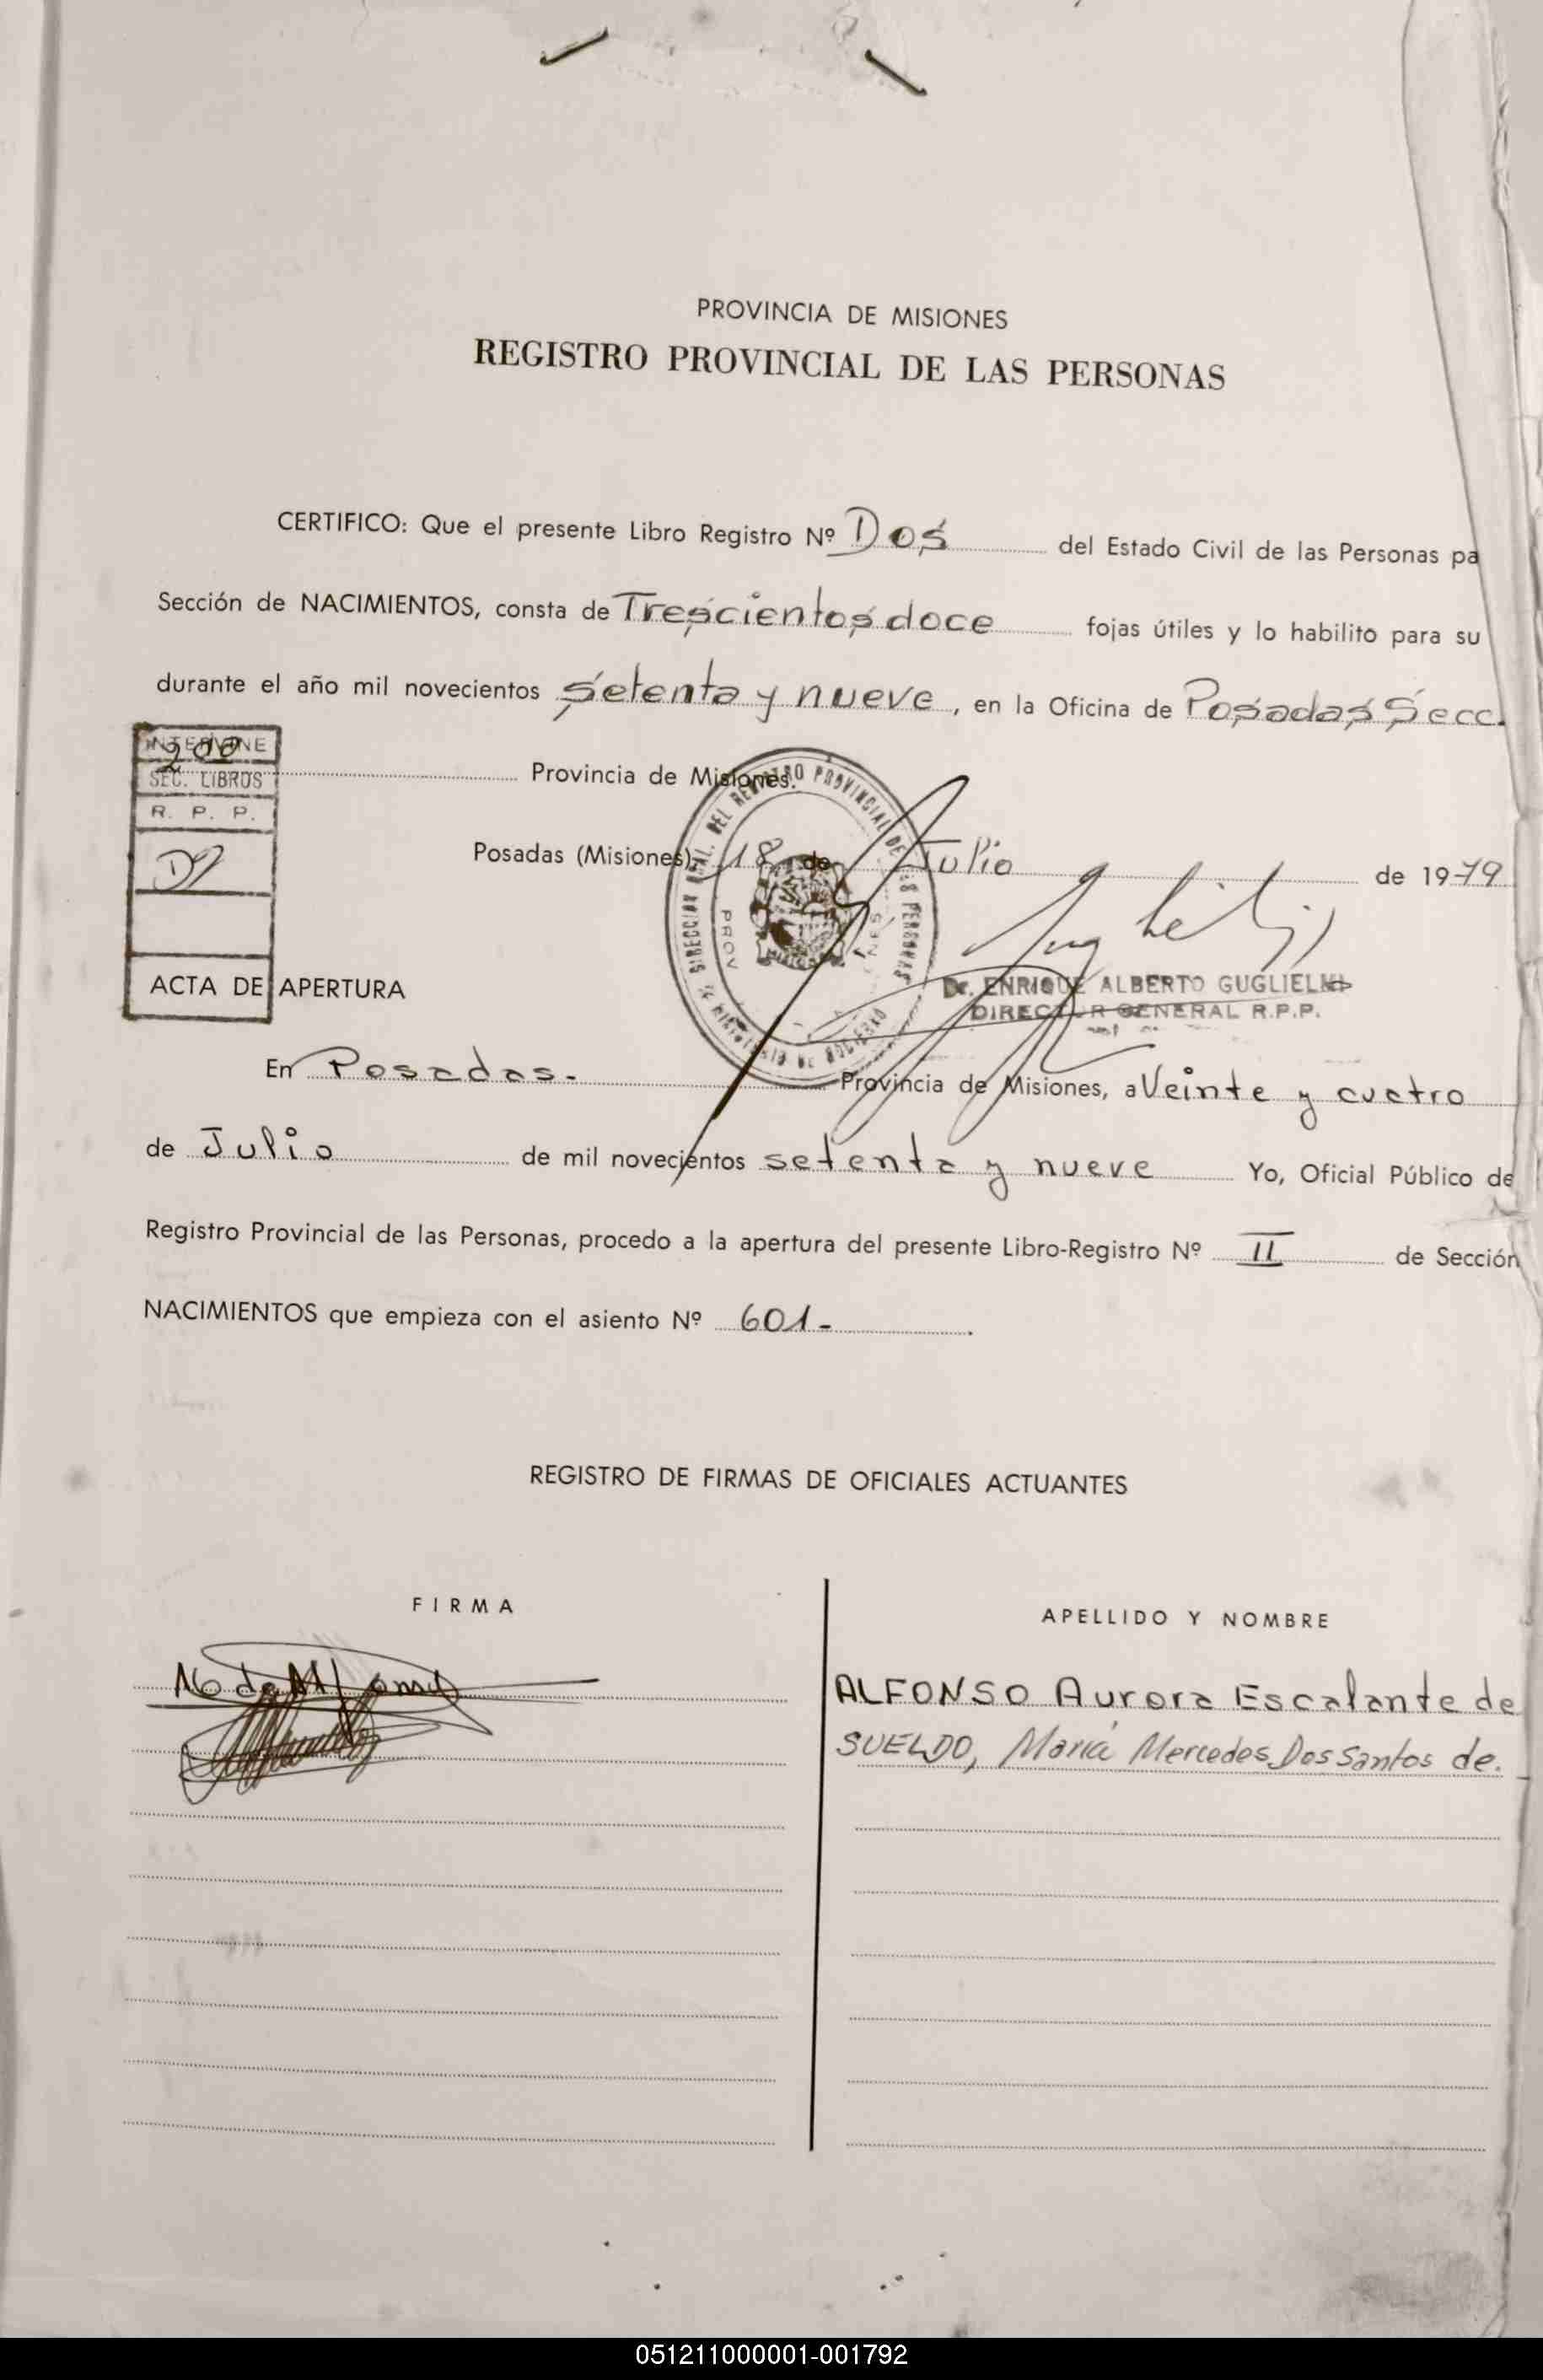 PROVINCIA DE MISIONES
REGISTRO PROVINCIAL DE LAS PERSONAS
CERTIFICO: Que el presente Libro Registro Nº Dos del Estado Civil de las Personas pa
Sección de NACIMIENTOS, consta de Trescientos doce fojas útiles y lo habilito para su
durante el año mil novecientos setenta y nueve, en la Oficina de Posadas Secc.
INTERVINE
SEC. LIBROS
R. P. P.
2da Provincia de Misiones.
Posadas (Misiones), 18 de Julio de 1979
Dr. ENRIQUE ALBERTO GUGLIELMI
DIRECTOR GENERAL R.P.P.
ACTA DE APERTURA
En Posadas.- Provincia de Misiones, a Veinte y cuatro
de Julio de mil novecientos setenta y nueve Yo, Oficial Público de
Registro Provincial de las Personas, procedo a la apertura del presente Libro-Registro Nº II de Sección
NACIMIENTOS que empieza con el asiento Nº 601-.
REGISTRO DE FIRMAS DE OFICIALES ACTUANTES
FIRMA
APELLIDO Y NOMBRE
ALFONSO Aurora Escalante de
SUELDO, María Mercedes Dos Santos de.
051211000001-001792